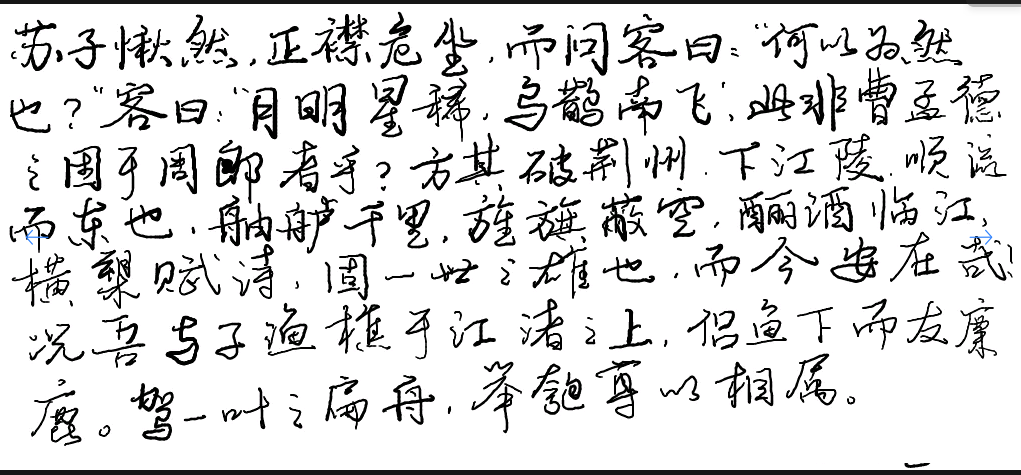 苏子愀然,正襟危坐,而问客曰:"何以为然
也?"客曰:"月明星稀,乌鹊南飞',此非曹孟德
之困于周郎者乎?方其破荆州.下江陵.顺流
而东也,舳舻千里,旌旗蔽空,酾酒临江,
横槊赋诗,固一世之雄也,而今安在哉!
况吾与子渔樵于江渚之上,侣鱼下而友麋
鹿。驾一叶之扁舟,举匏尊以相属。